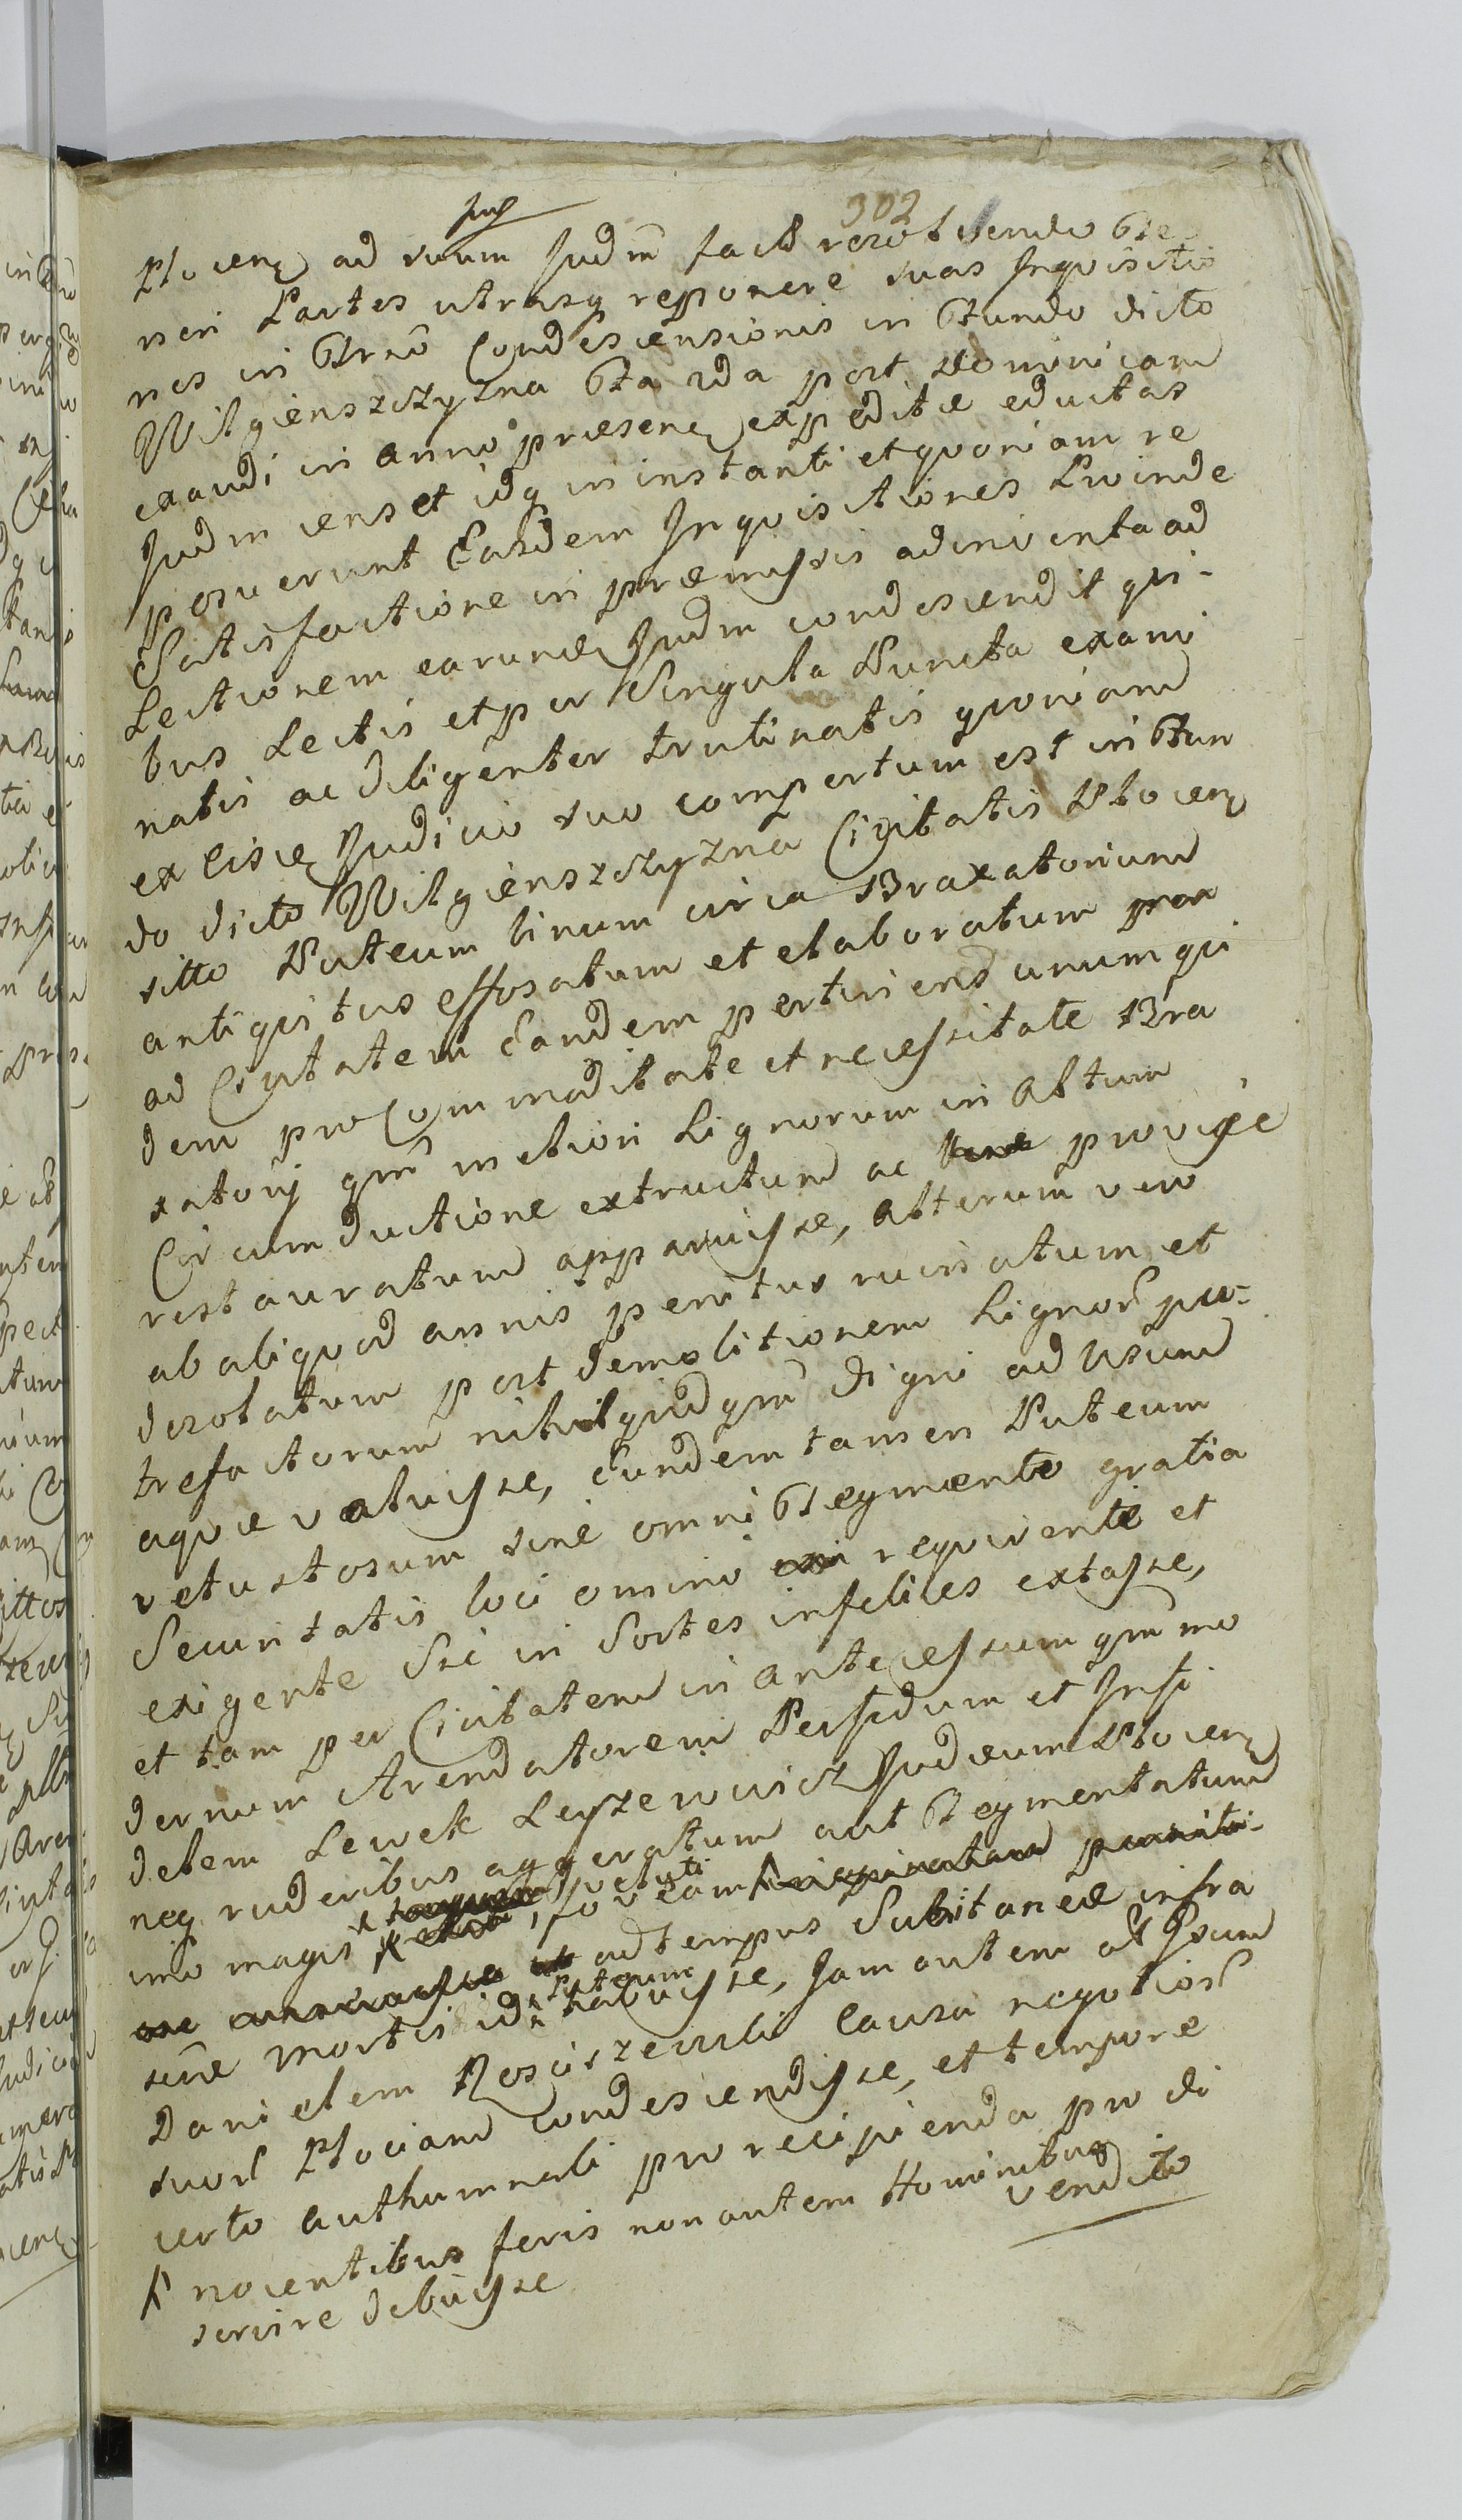 302
Plocen ad suum Judm facto rezolvendo te
neri Partes utrasq reponere suas Inqvisitio
nes in Trno Condescensionis in Fundo dicto
Wilgienszczyzna Fta 2da post Dominicam
exaudi in anno praesen expedite eductas
Judm censet idq in instanti et qvoniam re
posuerunt Easdem Inqvisitiones Proinde
Satisfactione in praemissis adinventa ad
Lectionem earunde Judm condescendit qvi-
bus Lectis et per Singula Puncta exami
natis ac diligenter trutinatis qvoniam
ex eisde Judicio suo compertum est in Fun
do dicto Wilgienszczyzna Civitatis Plocen
sitto Puteum binum circa Braxatorium
antiqvitus effosatum et elaboratum
ad Civitatem Eandem pertinens unum qvi
dem pro Commoditate et necessitate Bra
xatorij qm meliori Lignorum in altum
Circumductione extructum ac bene provise
restauratum apparuisse, alterum vero
ab aliqvod annis penitus ruinatum et
dezolatum post demolitionem Lignor pu-
trefactorum nihil qvidqm digni ad Usum
aqvae valuisse, Eundem tamen Puteum
vetustosum sine omni Tegmento gratia
Securitatis loci omino reqvirente et
exigente Sic in Sortes infelices extasse,
et tam per Civitatem in antecessum qm mo
dernum Arendatorem Perfidum et Infi
delem Lewek Leyzerowicz Judaeum Plocen
neq ruderibus aggeratum aut Tegmentatum
imo magis veluti foveam
ad tempus Subitaneae infra
sine mortis id Puteum habuisse, Jam autem olim Gsum
Danielem Rosciszewski Causa negotior
suor Plociam condescendisse, et tempore
certo authumnali pro recipienda pro di
vendito
nocentibus feris non autem Hominibus
servire debuisse